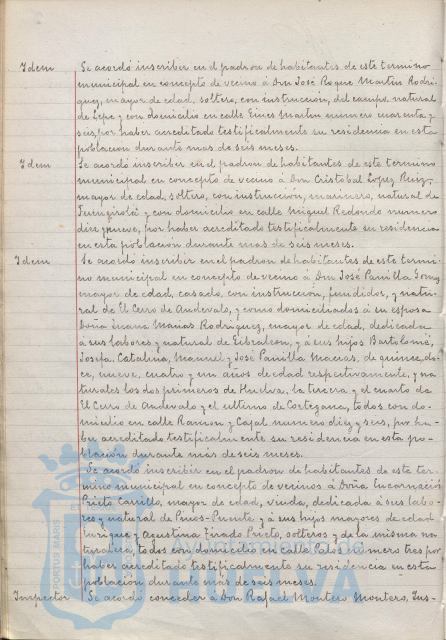 Idem Se acordó inscribir en el padron de habitantes de este termino
municipal en concepto de vecino á Don José Roque Martin Rodri-
guez, mayor de edad, soltero, con instrucción, del campo, natural
de Lepe y con domicilio en calle Gines Martin numero cuarenta y
seis, por haber acreditado testificalmente su residencia en esta
población durante mas de seis meses.
Idem Se acordó inscribir en el padron de habitantes de este termino
municipal en concepto de vecino á Don Cristobal Lopez Ruiz,
mayor de edad, soltero, con instrucción, marinero, natural de
Fuengirola y con domicilio en calle Miguel Redondo numero
diez y nueve, por haber acreditado testificalmente su residencia
en esta población durante mas de seis meses.
Idem Se acordó inscribir en el padron de habitantes de este termi-
no municipal en concepto de vecino á Don José Panilla Gomez
mayor de edad, casado, con instrucción, fundidor, y natu-
ral de El Cerro de Andevalo, y como domiciliados á su esposa
Doña Juana Macias Rodriguez, mayor de edad, dedicada
á sus labores y natural de Gibraleon, y á sus hijos Bartolomé,
Josefa, Catalina, Manuel y José Panilla Macias, de quince, do-
ce, nueve, cuatro y un años de edad respectivamente, y na-
turales los dos primeros de Huelva, la tercera y el cuarto de
El Cerro de Andevalo y el ultimo de Cortegana, todos con do-
micilio en calle Ramon y Cajal numero diez y seis, por ha-
ber acreditado testificalmente su residencia en esta po-
blación durante más de seis meses.
Se acordó inscribir en el padron de habitantes de este ter-
mino municipal en concepto de vecinos á Doña Encarnació
Prieto Carrillo, mayor de edad, viuda, dedicada á sus labo-
res y natural de Pinos-Puente y á sus hijos mayores de edad
Enrique y Agustina Tirado Prieto, solteros y de la misma na-
turaleza, todos con domicilio en calle Palos numero tres por
haber acreditado testificalmente su residencia en esta
población durante más de seis meses.
Inspector Se acordó conceder á Don Rafael Montero Montero, Ins-
PORTUS MARIS